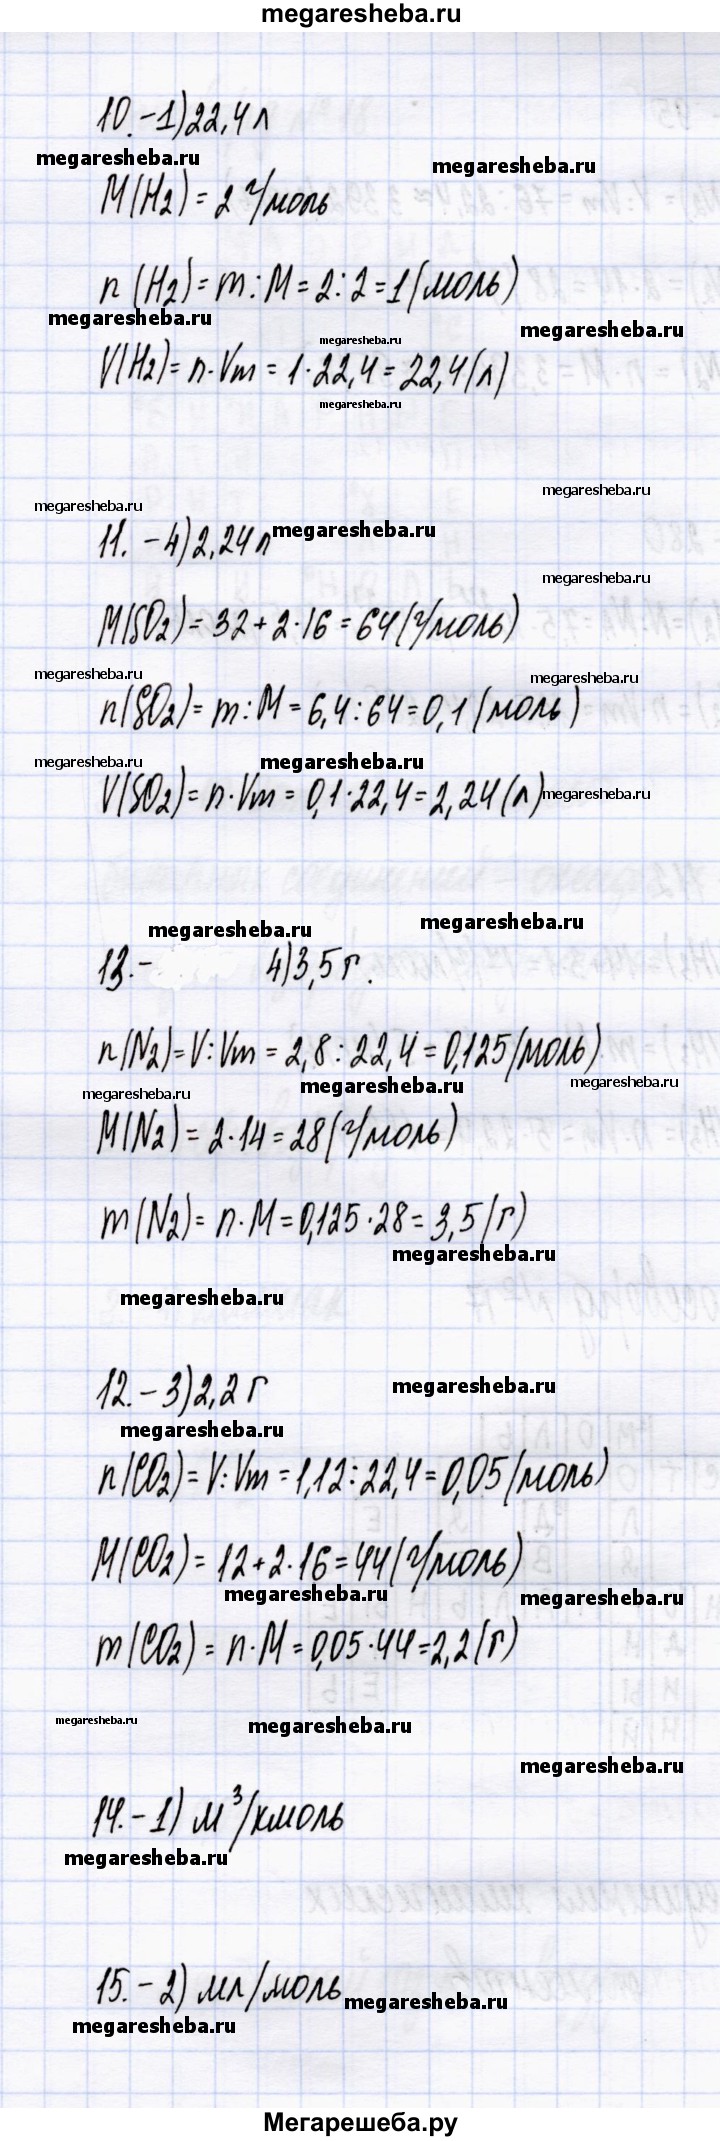 megaresheba.ru
10.-1) 22,4 л
megaresheba.ru megaresheba.ru
M(H₂) = 2 г/моль
n(H₂) = m : M = 2 : 2 = 1 (моль)
megaresheba.ru megaresheba.ru
megaresheba.ru
V(H₂) = n · Vm = 1 · 22,4 = 22,4 (л)
megaresheba.ru
megaresheba.ru megaresheba.ru
11. - 4) 2,24 л megaresheba.ru
megaresheba.ru
M(SO₂) = 32 + 2 · 16 = 64 (г/моль)
megaresheba.ru megaresheba.ru
n(SO₂) = m : M = 6,4 : 64 = 0,1 (моль)
megaresheba.ru megaresheba.ru
V(SO₂) = n · Vm = 0,1 · 22,4 = 2,24 (л) megaresheba.ru
megaresheba.ru megaresheba.ru
13. - 4) 3,5 г.
n(N₂) = V : Vm = 2,8 : 22,4 = 0,125 (моль)
megaresheba.ru megaresheba.ru megaresheba.ru
M(N₂) = 2 · 14 = 28 (г/моль)
m(N₂) = n · M = 0,125 · 28 = 3,5 (г)
megaresheba.ru
megaresheba.ru
12. - 3) 2,2 г megaresheba.ru
megaresheba.ru
n(CO₂) = V : Vm = 1,12 : 22,4 = 0,05 (моль)
M(CO₂) = 12 + 2 · 16 = 44 (г/моль)
megaresheba.ru megaresheba.ru
m(CO₂) = n · M = 0,05 · 44 = 2,2 (г)
megaresheba.ru megaresheba.ru
megaresheba.ru
14. - 1) м³/кмоль
megaresheba.ru
15. - 2) мл/моль megaresheba.ru
megaresheba.ru
Мегарешеба.ру